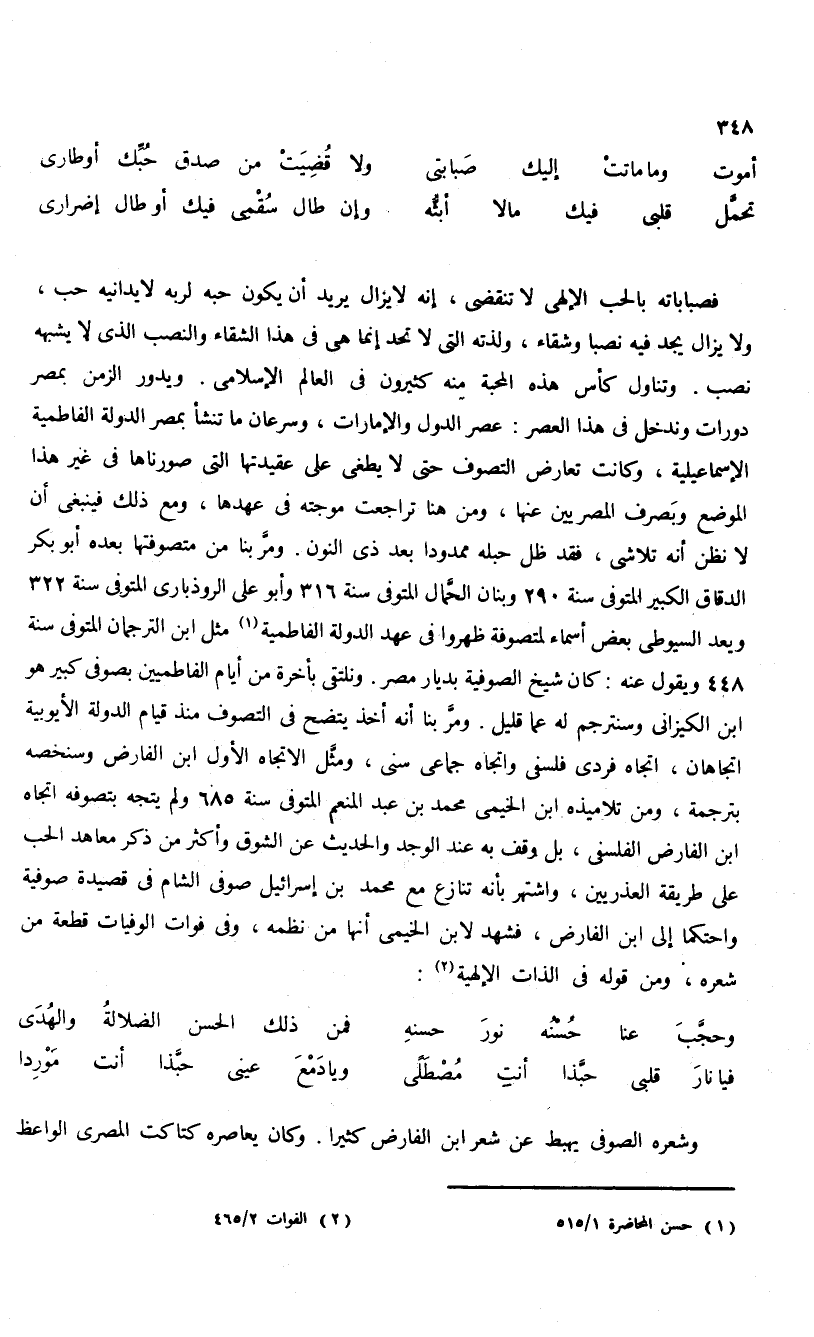 ٣٤٨
أموت وما ماتتْ إليك صَبابتى ولا قُضِيَتْ من صدق حُبِّك أوطارى
تحمَّل قلبى فيك مالا أبثُّه وإن طال سُقْمى فيك أو طال إضرارى
فصباباته بالحب الإلهى لا تنقضى ، إنه لايزال يريد أن يكون حبه لربه لايدانيه حب ،
ولا يزال يجد فيه نصبا وشقاء ، ولذته التى لا تحد إنما هى فى هذا الشقاء والنصب الذى لا يشبهه
نصب . وتناول كأس هذه المحبة منه كثيرون فى العالم الإسلامى . ويدور الزمن بمصر
دورات وندخل فى هذا العصر : عصر الدول والإمارات ، وسرعان ما تنشأ بمصر الدولة الفاطمية
الإسماعيلية ، وكانت تعارض التصوف حتى لا يطغى على عقيدتها التى صورناها فى غير هذا
الموضع ويَصرف المصريين عنها ، ومن هنا تراجعت موجته فى عهدها ، ومع ذلك فينبغى أن
لا نظن أنه تلاشى ، فقد ظل حبله ممدودا بعد ذى النون . ومرَّ بنا من متصوفتها بعده أبو بكر
الدقاق الكبير المتوفى سنة ٢٩٠ وبنان الحَّمال المتوفى سنة ٣١٦ وأبو على الروذبارى المتوفى سنة ٣٢٢
ويعد السيوطى بعض أسماء لمتصوفة ظهروا فى عهد الدولة الفاطمية(١) مثل ابن الترجمان المتوفى سنة
٤٤٨ ويقول عنه : كان شيخ الصوفية بديار مصر . ونلتقى بأخرة من أيام الفاطميين بصوفى كبير هو
ابن الكيزانى وسنترجم له عما قليل . ومرَّ بنا أنه أخذ يتضح فى التصوف منذ قيام الدولة الأيوبية
اتجاهان ، اتجاه فردى فلسفى واتجاه جماعى سنى ، ومثَّل الاتجاه الأول ابن الفارض وسنخصه
بترجمة ، ومن تلاميذه ابن الخيمى محمد بن عبد المنعم المتوفى سنة ٦٨٥ ولم يتجه بتصوفه اتجاه
ابن الفارض الفلسفى ، بل وقف به عند الوجد والحديث عن الشوق وأكثر من ذكر معاهد الحب
على طريقة العذريين ، واشتهر بأنه تنازع مع محمد بن إسرائيل صوفى الشام فى قصيدة صوفية
واحتكما إلى ابن الفارض ، فشهد لابن الخيمى أنها من نظمه ، وفى فوات الوفيات قطعة من
شعره ، ومن قوله فى الذات الإلهية(٢) :
وحجَّبَ عنا حُسْنُه نورَ حسنهِ فمن ذلك الحسن الضلالةُ والهُدَى
فيا نارَ قلبى حبَّذا أنتِ مُصْطَلًى ويادَمْعَ عينى حبَّذا أنت مَوْرِدا
وشعره الصوفى يهبط عن شعر ابن الفارض كثيرا . وكان يعاصره كتاكت المصرى الواعظ
(١) حسن المحاضرة ٥١٥/١ (٢) الفوات ٤٦٥/٢